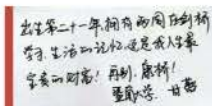 出生第二十一年，拥有两周在剑桥
学习、生活的记忆，这是我人生最
宝贵的财富！再别，康桥！
甘